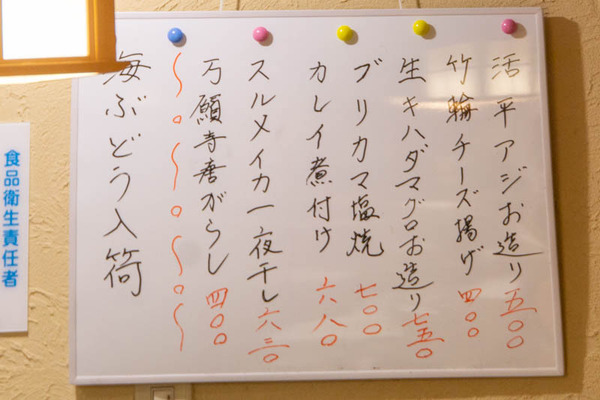 活平アジお造り五〇〇
竹輪チーズ揚げ四〇〇
生キハダマグロお造り七五〇
ブリカマ塩焼七〇〇
カレイ煮付け六八〇
スルメイカ一夜干し六三〇
万願寺唐がらし四〇〇
海ぶどう入荷
食品衛生責任者